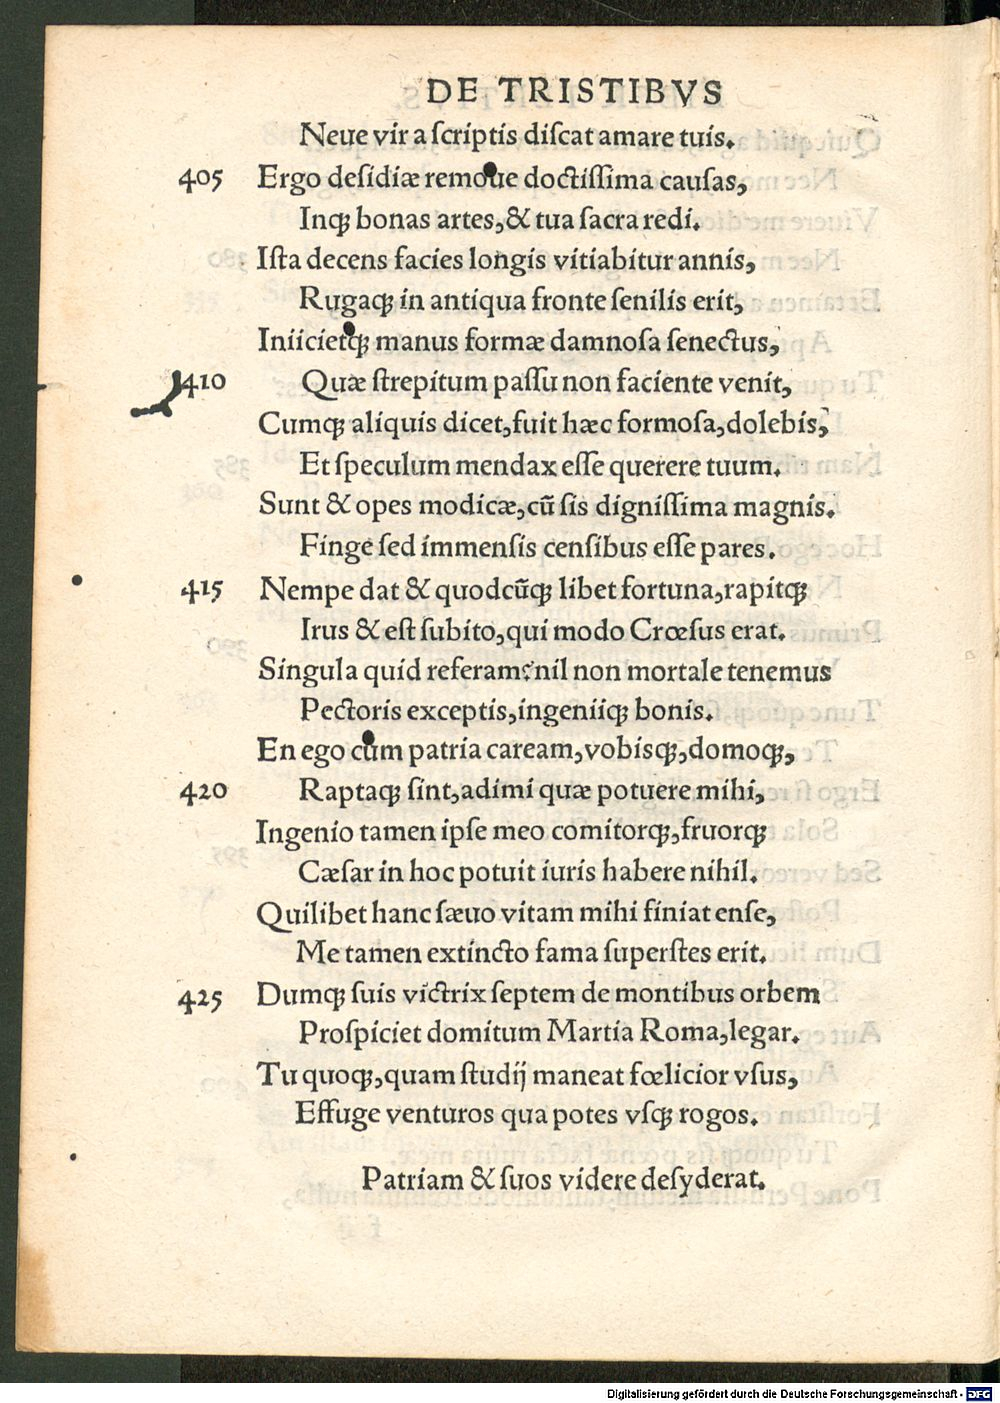 DE TRISTIBVS
Neue vir a ſcriptis diſcat amare tuis.
405 Ergo deſidiæ remoue doctiſſima cauſas,
Inqꝫ bonas artes, & tua ſacra redi.
Iſta decens facies longis vitiabitur annis,
Rugaqꝫ in antiqua fronte ſenilis erit,
Iniicietqꝫ manus formæ damnoſa ſenectus,
410 Quæ ſtrepitum paſſu non faciente venit,
Cumqꝫ aliquis dicet, fuit hæc formoſa, dolebis,
Et ſpeculum mendax eſſe querere tuum.
Sunt & opes modicæ, cū ſis digniſſima magnis.
Finge ſed immenſis cenſibus eſſe pares.
415 Nempe dat & quodcūqꝫ libet fortuna, rapitqꝫ
Irus & eſt ſubito, qui modo Crœſus erat.
Singula quid referam? nil non mortale tenemus
Pectoris exceptis, ingeniiqꝫ bonis.
En ego cum patria caream, vobisqꝫ, domoqꝫ,
420 Raptaqꝫ ſint, adimi quæ potuere mihi,
Ingenio tamen ipſe meo comitorqꝫ, fruorqꝫ
Cæſar in hoc potuit iuris habere nihil.
Quilibet hanc ſæuo vitam mihi finiat enſe,
Me tamen extincto fama ſuperſtes erit.
425 Dumqꝫ ſuis victrix ſeptem de montibus orbem
Proſpiciet domitum Martia Roma, legar.
Tu quoqꝫ, quam ſtudij maneat fœlicior vſus,
Effuge venturos qua potes vſqꝫ rogos.
Patriam & ſuos videre deſyderat.
Digitalisierung gefördert durch die Deutsche Forschungsgemeinschaft - DFG